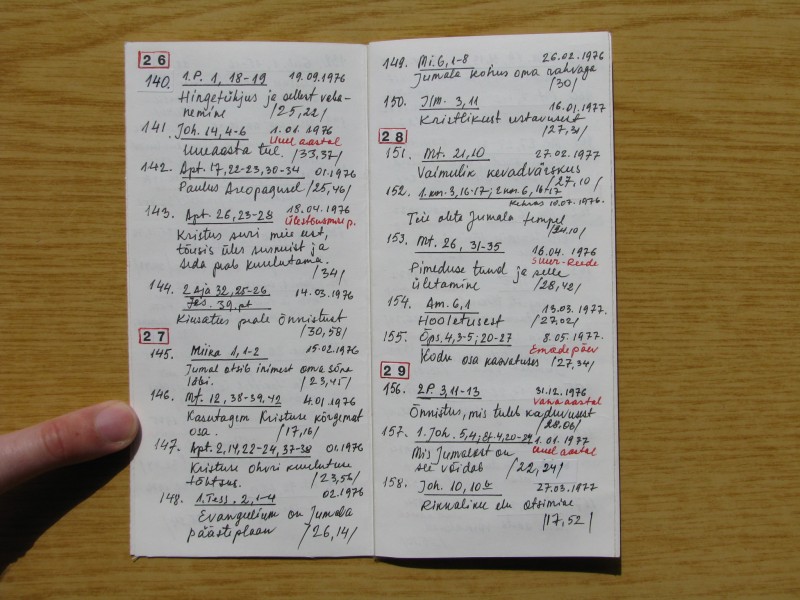 26
140. 1.P. 1, 18-19 19.09.1976
Hingetühjus ja sellest vaba-
nemine /25,22/
141. Joh. 14, 4-6 1.01.1976
Uuel aastal
Uueaasta tul. /33,37/
142. Apt. 17,22-23,30-34 01.1976
Paulus Areopagusel /25,46/
143. Apt. 26,23-28 18.04.1976
Ülestõusmise p.
Kristus suri meie eest,
tõusis üles surnuist ja
seda peab kuulutama.
/34/
144. 2 Aja 32,25-26 14.03.1976
Jes. 39. pt
Kiusatus peale õnnistust
/30,58/
27
145. Miika 1,1-2 15.02.1976
Jumal otsib inimest oma sõna
läbi. /23,45/
146. Mt. 12, 38-39,42 4.01.1976
Kasutagem Kristuse kõrgemat
osa. /17,16/
147. Apt. 2,14,22-24,37-38 01.1976
Kristuse ohvri kuulutuse
tähtsus. /23,56/
148. 1.Tess. 2,1-4 02.1976
Evangeelium on Jumala
päästeplaan /26,14/
149. Mi. 6,1-8 26.02.1976
Jumala kohus oma rahvaga
/30/
150. Ilm. 3,11 16.01.1977
Kristlikust ustavusest
/27,31/
28
151. Mt. 21,10 27.02.1977
Vaimulik kevadvärskus
/27,10/
152. 1.Kor. 3,16-17; 2 Kor. 6,16-17
Kehras 10.07.1976.
Teie olete Jumala tempel
/24.10/
153. Mt. 26, 31-35 16.04.1976
Suur-Reede
Pimeduse tund ja selle
ületamine /28,42/
154. Am. 6,1 13.03.1977.
Hooletusest /27.02/
155. Õps. 4,3-5; 20-27 8.05.1977.
Emadepäev
Kodu osa kasvatuses /27,34/
29
156. 2P. 3,11-13 31.12.1976
Vana aastal
Õnnistus, mis tuleb kaduvusest
/28.06/
157. 1. Joh. 5,4; Ef. 4,20-24 1.01.1977
Uuel aastal
Mis Jumalast on
see võidab /22,24/
158. Joh. 10,10b 27.03.1977
Rikkaliku elu otsimine
/17,52/